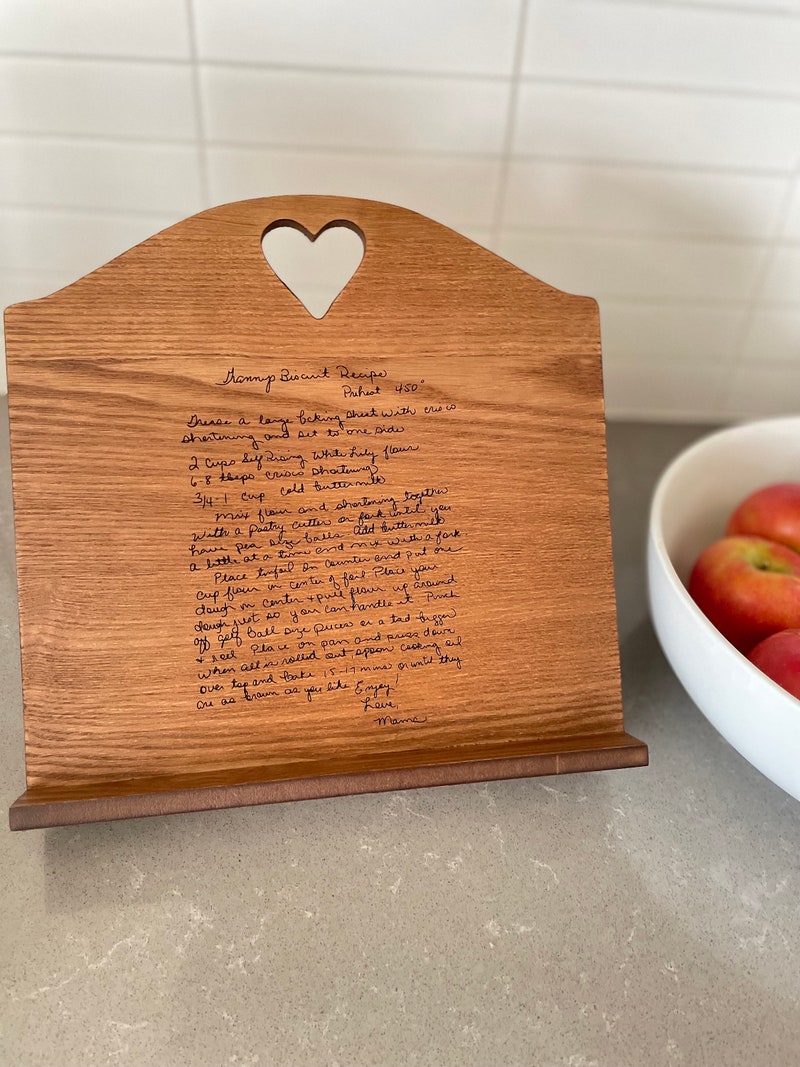 Granny Biscuit Recipe
Preheat 450°
Grease a large baking sheet with crisco
shortening and set to one side
2 Cups Self Rising White Lily flour
6-8 tbsps crisco shortening
3/4-1 cup cold buttermilk
Mix flour and shortening together
with a pastry cutter or fork until you
have pea size balls. Add buttermilk
a little at a time and mix with a fork
Place tinfoil on counter and put one
cup flour in center of foil Place your
dough in center + pull flour up around
dough just so you can handle it Pinch
off golf ball size pieces or a tad bigger
+ roll Place on pan and press down
When all is rolled out, spoon cooking oil
over top and bake 15-17 mins or until they
are as brown as you like Enjoy!
Love,
Mama